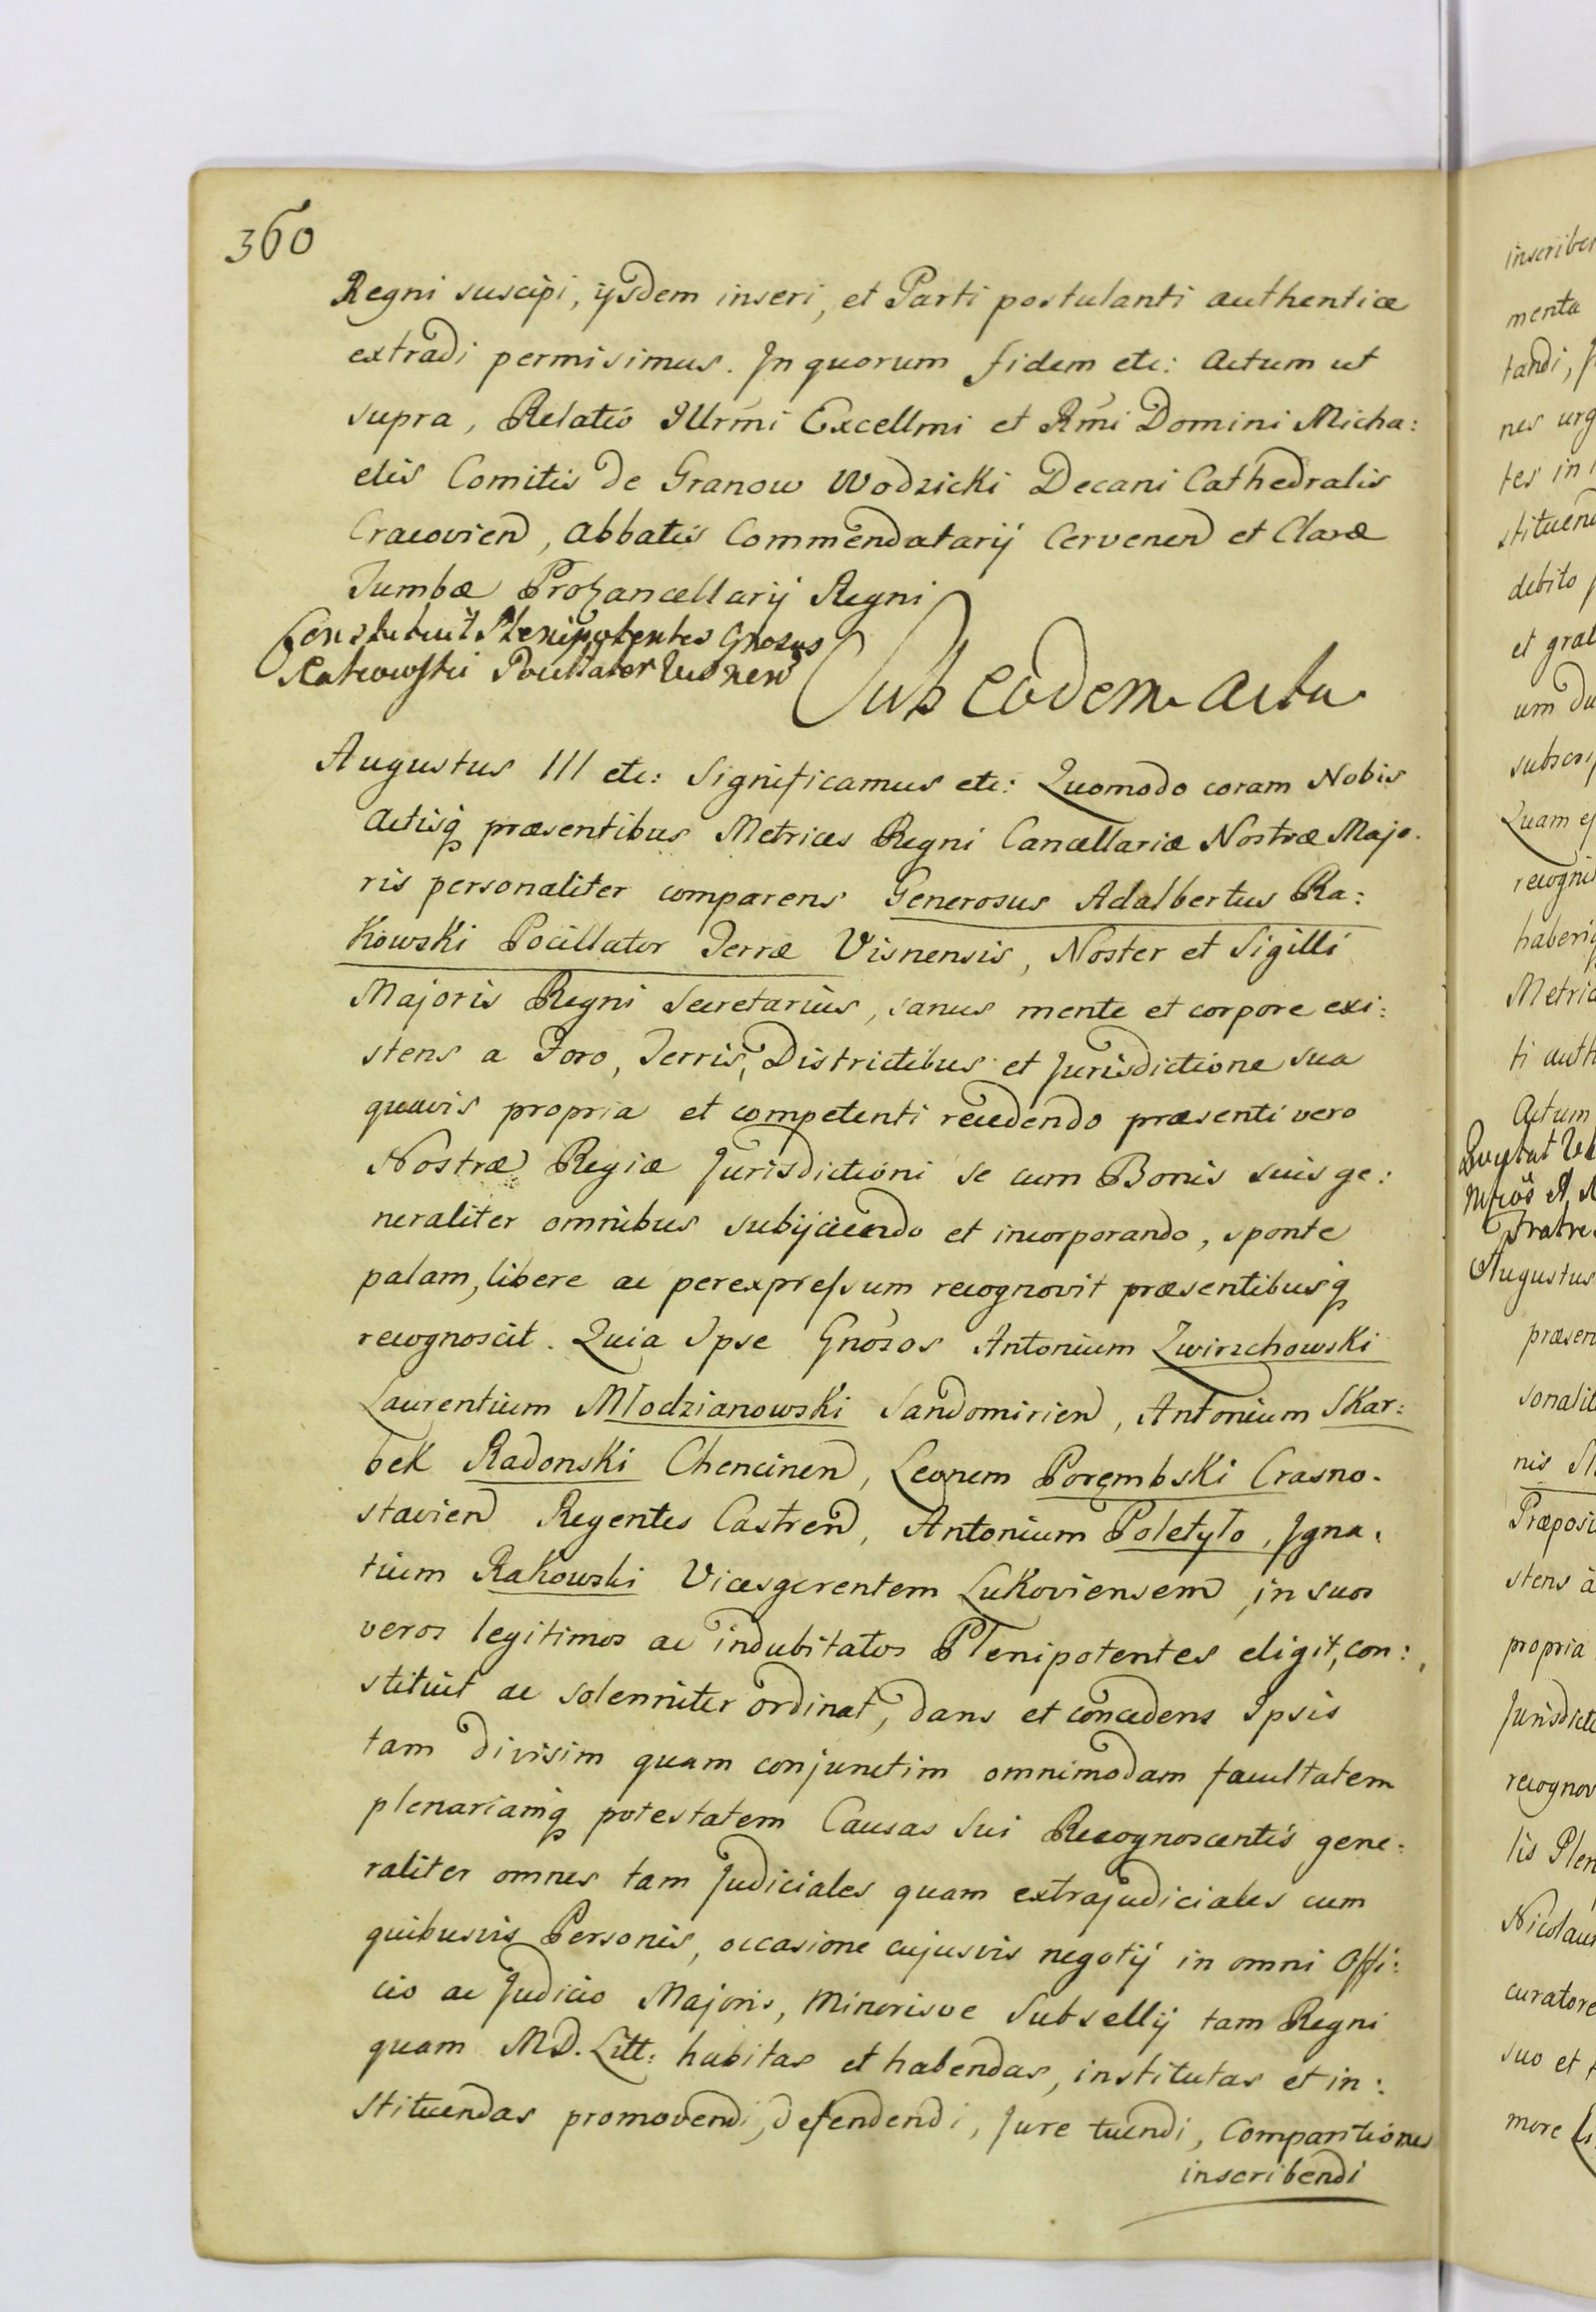 360
Regni suscipi, ijsdem inseri, et Parti postulanti authenticæ
extradi permisimus. In quorum fidem etc: Actum ut
supra, Relatio Illrmi Excellmi et Rmi Domini Micha:
elis Comitis de Granow Wodzicki Decani Cathedralis
Cracovien, Abbatis Commendatarij Cervenen et Claræ
Tumbæ Procancellarij Regni
Constituit Plenipotentes Gnosus
Rakowski Pocillator Visnen
Sub eodem actu
Augustus III etc: Significamus etc: Quomodo coram Nobis
Actisq præsentibus Metrices Regni Cancellariæ Nostræ Majo.
ris personaliter comparens Generosus Adalbertus Ra:
Kowski Pocillator Terræ Visnensis, Noster et Sigilli
Majoris Regni Secretarius, sanus mente et corpore exi:
stens a Foro, Terris, Districtibus et Jurisdictione sua
quavis propria et competenti recedendo præsenti vero
Nostræ Regiæ Jurisdictioni se cum Bonis suis ge:
neraliter omnibus subijciendo et incorporando, sponte
palam, libere ac perexpressum recognovit præsentibusq
recognoscit. Quia Ipse Gnosos Antonium Zwirzchowski
Laurentium Młodzianowski Sandomirien, Antonium Skar:
bek Radonski Chencinen, Leonem Porębski Crasno.
stavien Regentes Castren, Antonium Poletyło, Igna.
tium Rakowski Vicesgerentem Lukoviensem, in suos
veros legitimos ac indubitatos Plenipotentes eligit, con:
stituit ac solenniter ordinat, dans et concedens Ipsis
tam divisim quam conjunctim omnimodam facultatem
plenariamq potestatem Causas Sui Recognoscentis gene:
raliter omnes tam Judiciales quam extrajudiciales cum
quibusvis Personis, occasione cujusvis negotij in omni Offi:
cio ac Judicio Majoris, Minorisve Subsellij tam Regni
quam M.D. Litt: habitas et habendas, institutas et in:
stituendas promovendi, defendendi, Jure tuendi, Comparitiones
inscribendi
menta
tandi,
nes urg
tes in
debito
et grat
um du
Quam
Metric
ti auth
Actum
Augustus
præsen
sonalit
nis
Præposi
stens à
propria
Jurisdicti
recognov
lis Plen
Nicolaus
curatore
suo et
more